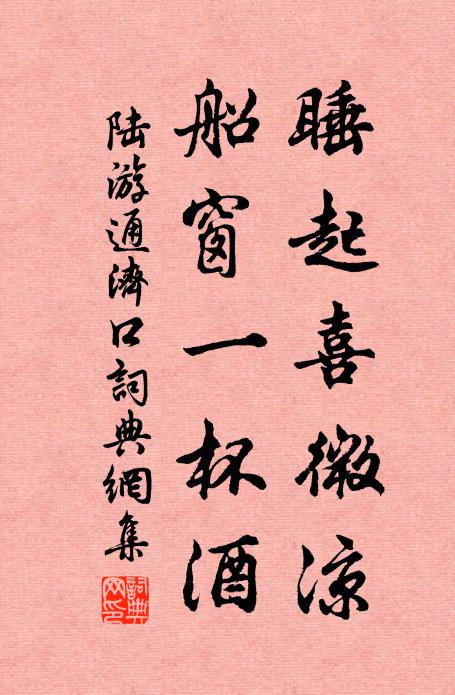 睡起喜微涼
船窗一杯酒
陆游通濟口詞典網集
詞典网印